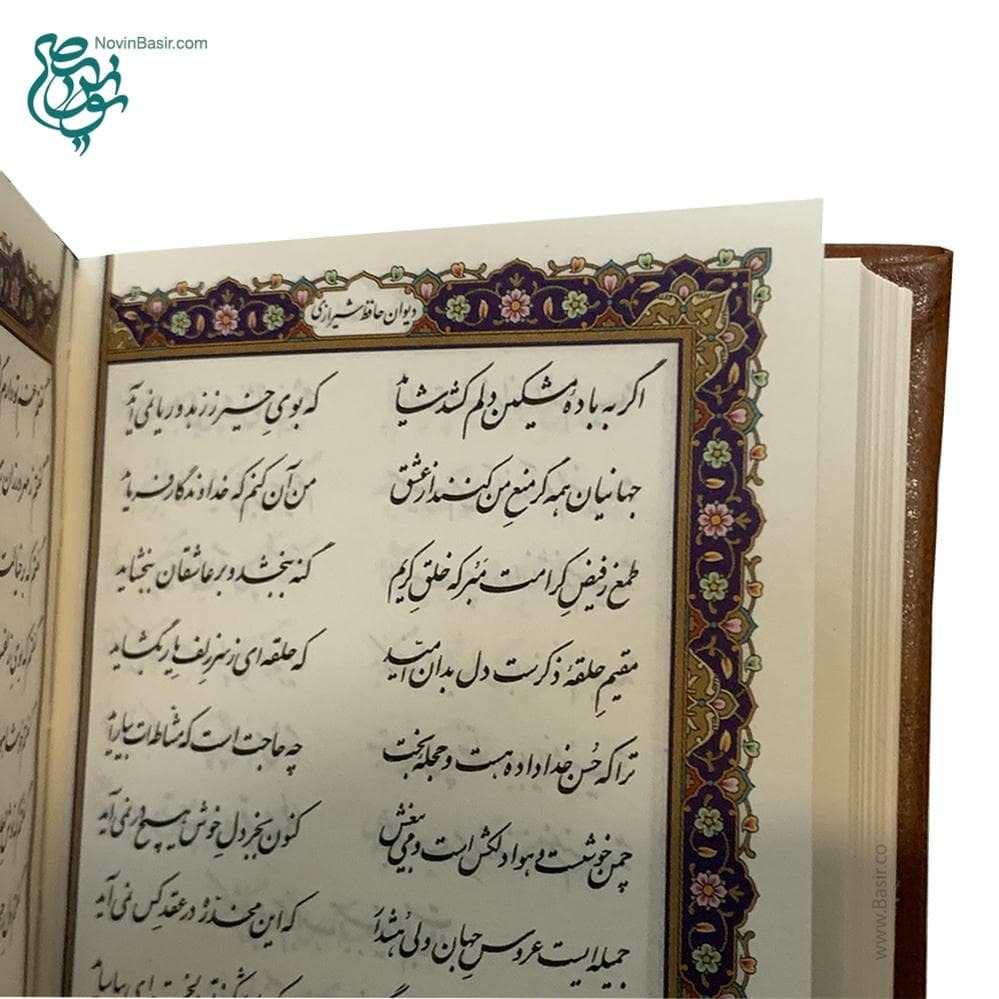 NovinBasir.com
دیوان حافظ شیرازی
اگر به بادهٔ مشکین دلم کشد شاید که بوی خیر ز زهد و ریا نمی‌آید
جهانیان همه گر منعِ من کنند از عشق من آن کنم که خداوندگار فرماید
طمع ز فیضِ کرامت مَبُر که خلقِ کریم گنه ببخشد و بر عاشقان ببخشاید
مقیمِ حلقهٔ ذکرست دل بدان امید که حلقه‌ای ز سرِ زلفِ یار بگشاید
ترا که حُسنِ خداداده هست و حجلهٔ بخت چه حاجت است که مشّاطه‌ات بیاراید
چمن خوشست و هوا دلکش است و می بیغش کنون بجز دلِ خوش هیچ در نمی‌آید
جمیله ایست عروسِ جهان ولی هُشدار که این مخدّره در عقدِ کس نمی‌آید
www.Basir.co